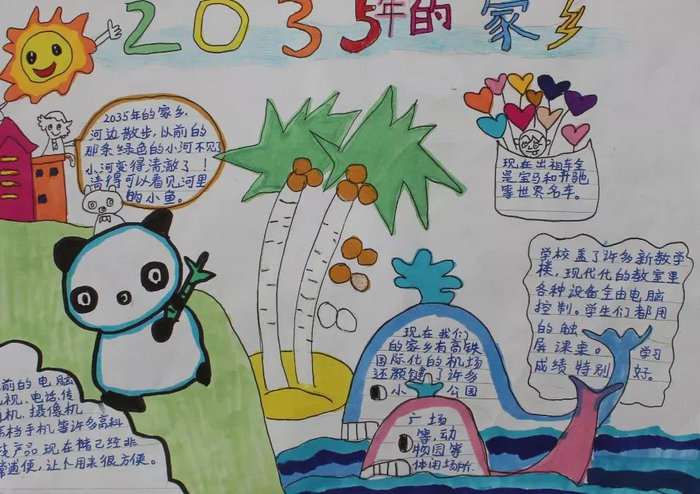 2035年的家乡
2035年的家乡,
河边散步,以前的
那条绿色的小河不见了
小河变得清澈了!
清得可以看见河里
的小鱼。
现在出租车全
是宝马和奔驰
等世界名车。
学校盖了许多新教学
楼,现代化的教室里
各种设备全由电脑
控制。学生们都用
的触
屏课桌。学习
成绩特别好。
现在我们
的家乡有高铁
国际化的机场
还新建了许多
小公园
广场
等,动
物园等
休闲场所。
前的电脑
视、电话、传
机、摄像机
档手机等许多高科
技产品现在
已经非
常普便,让人用来很方便。